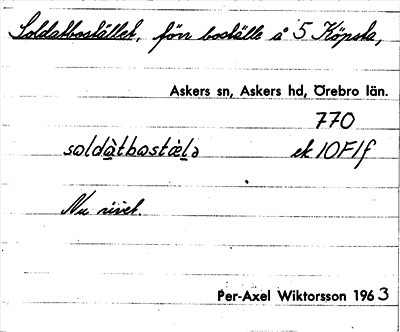 Soldatbostället, förv boställe å 5 Köpsta,
Askers sn, Askers hd, Örebro län.
770
soldàtbostɛ̀lə ek 10F1f
Nu rivet.
Per-Axel Wiktorsson 1963